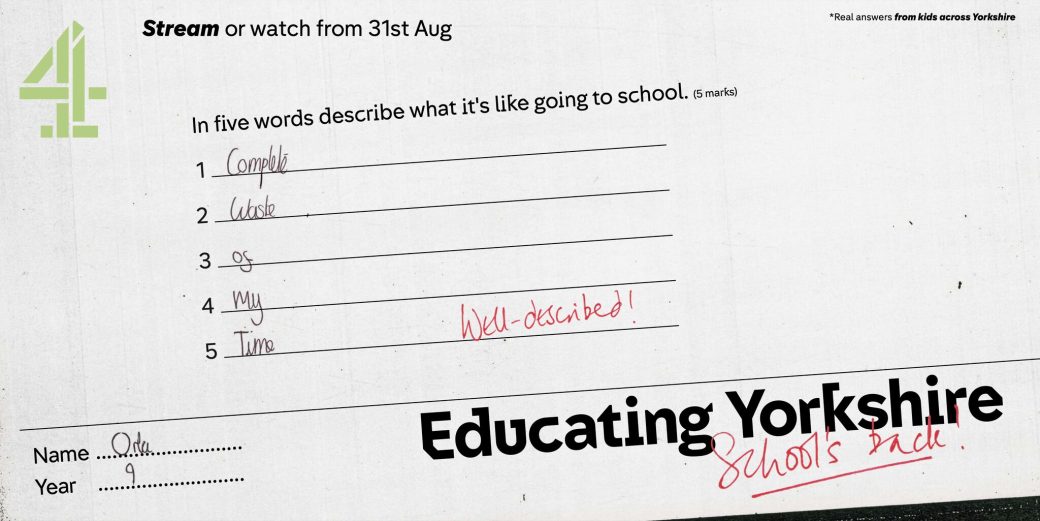 4
Stream or watch from 31st Aug
*Real answers from kids across Yorkshire
In five words describe what it's like going to school. (5 marks)
1 Complete
2 Waste
3 of
4 My
5 Time
Well-described!
Educating Yorkshire
School's back!
Name Orla
Year 9